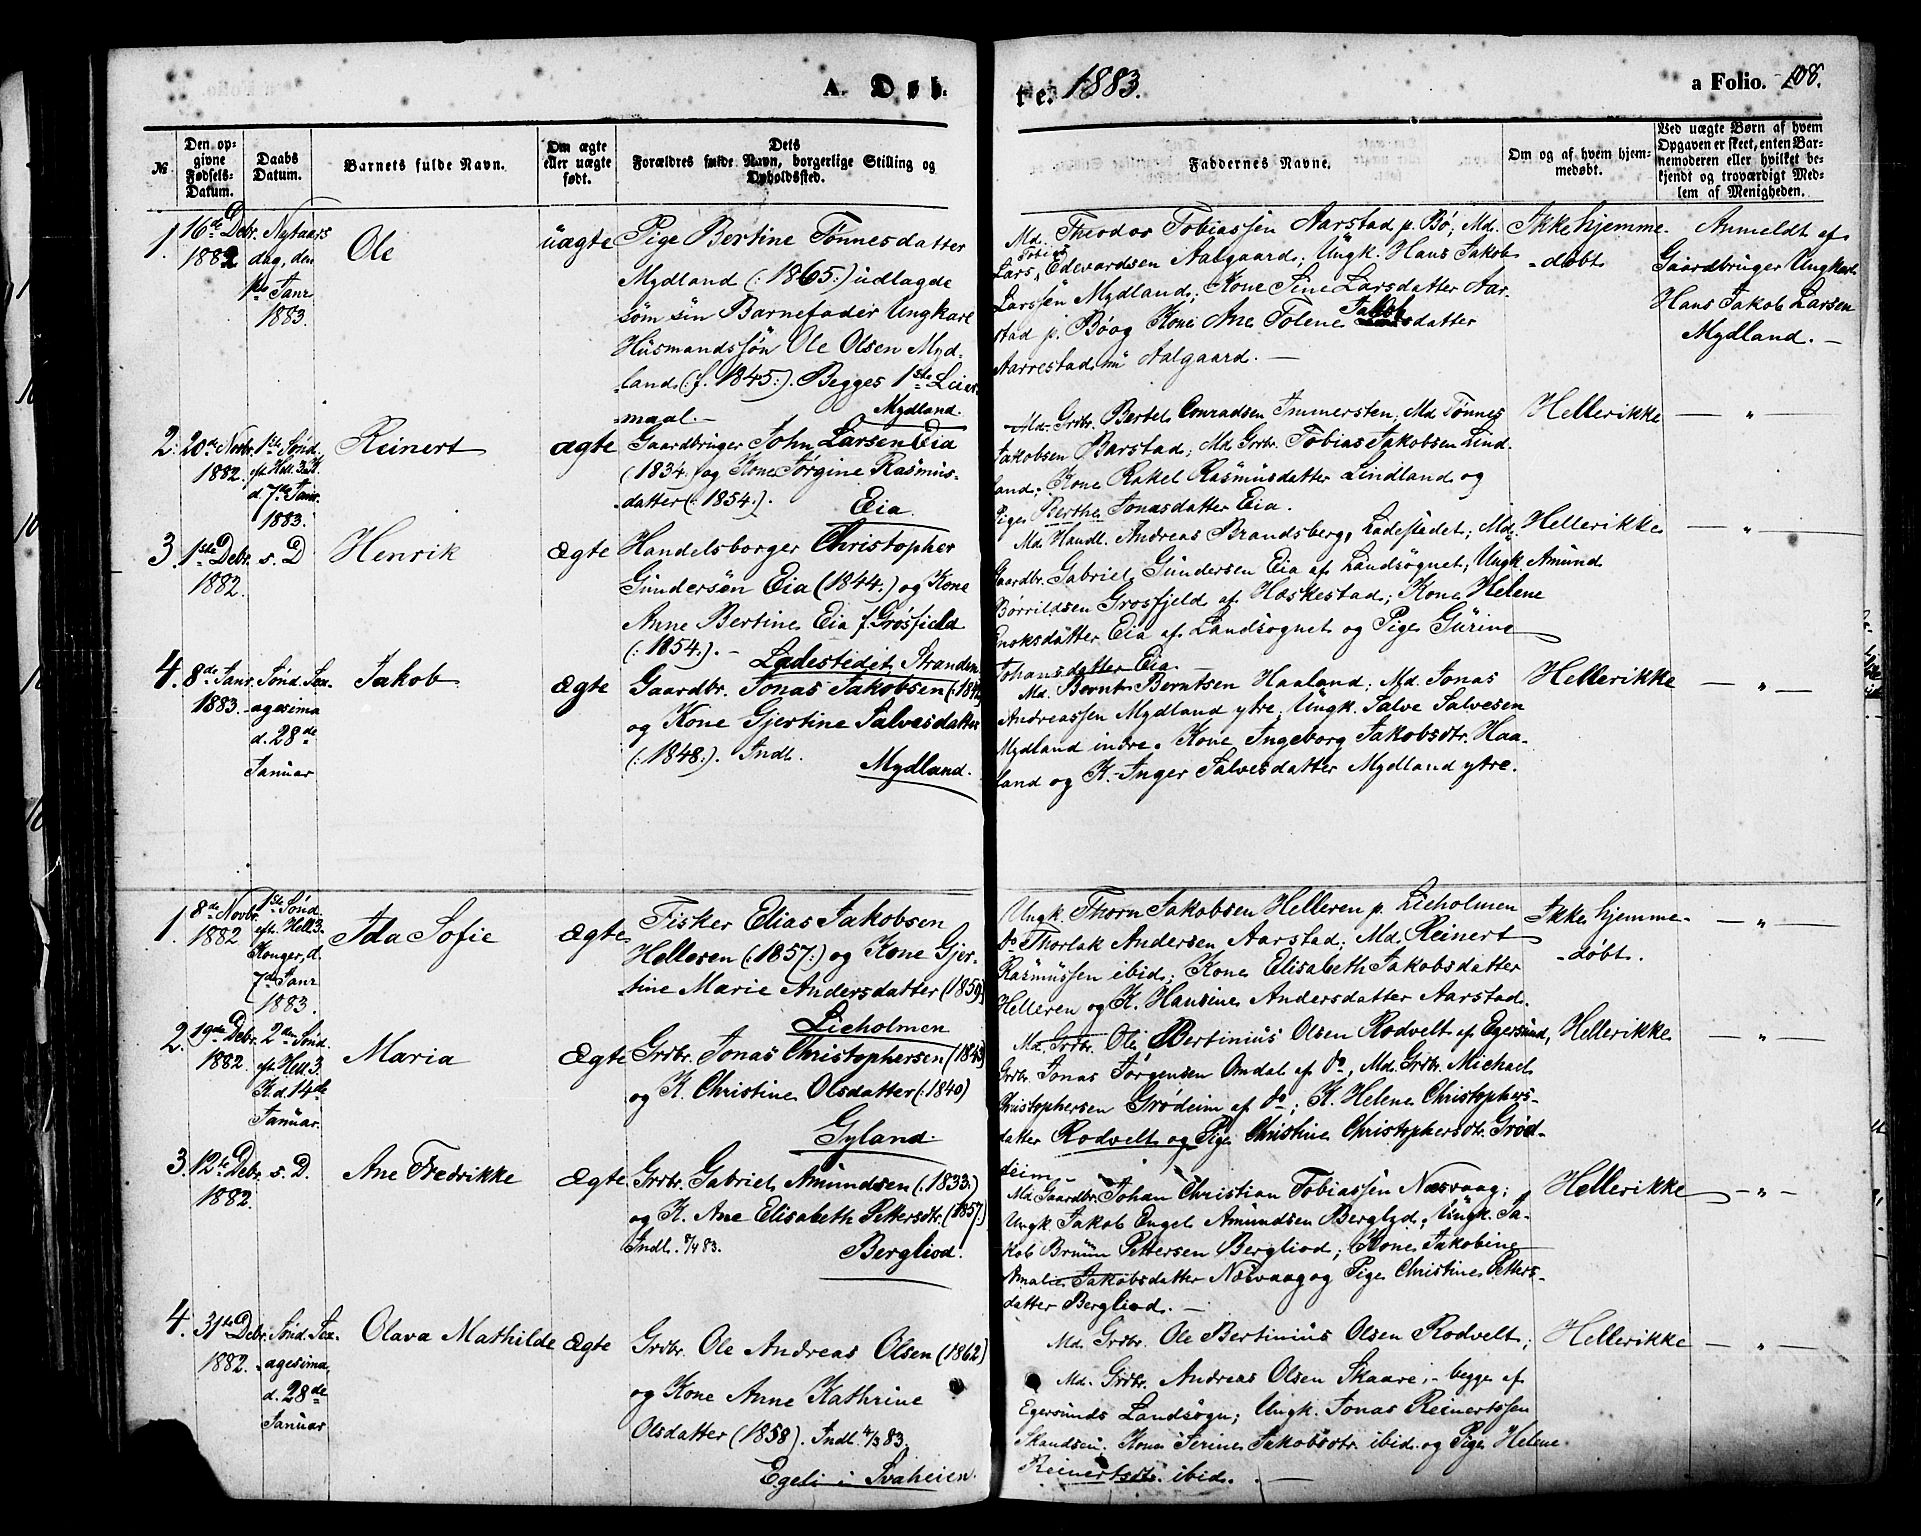 A. Døb-
te. 1883.
a Folio. 108.
№
Den op-
givne
Fødsels-
Datum.
Daabs
Datum.
Barnets fulde Navn.
Om ægte
eller uægte
født.
Dets
Forældres fulde Navn, borgerlige Stilling og
Opholdssted.
Faddernes Navne.
Om og af hvem hjem-
medøbt.
Ved uægte Børn af hvem
Opgaven er skeet, enten Bar-
nemoderen eller hvilket be-
kjendt og troværdigt Med-
lem af Menigheden.
1. 16de Debr.
1882
Nytaars
dag, den
1ste Janr
1883.
Ole
uægte
Pige Bertine Tønnesdatter
Mydland (:1865:) udlagde
som sin Barnefader Ungkarl
Husmandssøn Ole Olsen Myd-
land (:f. 1845:). Begges 1ste Leier-
maal.-
Mydland.
Md. Theodor Tobiassen Aarstad p. Bø; Md.
Lars Tobias Edevardsen Aalgaard; Ungk. Hans Jakob
Larssen Mydland; Kone Sine Larsdatter Aar-
stad p. Bø og Kone Ane Tolene Jakobsdatter
Aarrestad nu Aalgaard. —
Ikke hjemme-
-døbt
Anmeldt af
Gaardbruger Ungkarl
Hans Jakob Larsen
Mydland. —
2. 20de Novbr.
1882.
1ste Sønd.
eft. Hell. 3 K.
d. 7de Janr.
1883.
Reinert
ægte
Gaardbruger John Larsen Eia
(1834:) og Kone Jørgine Rasmus-
datter (:1854:).
Eia.
Md. Grbr. Bertel Conradsen Immersten; Md. Tønnes
Jakobsen Barstad; Md. Grbr. Tobias Jakobsen Lind-
land; Kone Rakel Rasmusdatter Lindland og
Pige Berthe Jonasdatter Eia.
Hellerikke
— " —
3. 1ste Debr.
1882.
s. D
Henrik
Ægte
Handelsborger Christopher
Gundersøn Eia (1844:) og Kone
Anne Bertine Eia f. Grøsfjeld
(:1854:).-
Ladestedet Stranden
Md. Handl. Andreas Brandsberg, Ladestedet; Md.
Gaardbr. Gabriel Gundersen Eia af Landsognet; Ungk. Amund
Børrildsen Grøsfjeld af Hæskestad; Kone Helene
Enoksdatter Eia af Landsognet og Pige Gurine
Johansdatter Eia.
Hellerikke
— " —
4. 8de Janr.
1883.
Sønd. Sex-
agesima
d. 28de
Januar
Jakob
Ægte
Gaardbr. Jonas Jakobsen
og Kone Gjertine Salvesdatter
(:1848:). Indl.
Mydland.
Md. Bernt Berntsen Haaland; Md. Jonas
Andreassen Mydland ytre; Ungk. Salve Salvesen
Mydland indre. Kone Ingeborg Jakobsdtr. Haa-
land og K. Inger Salvesdatter Mydland ytre.
Hellerikke
— " —
1. 8de Novbr.
1882
1ste Sønd.
eft. Hell. 3
Konger, d.
7de Janr
1883.
Ida Sofie
Ægte
Fisker Elias Jakobsen
Helleren (:1857:) og Kone Gjer-
tine Marie Andersdatter (1859)
Licholmen
Ungk. Thorn Jakobsen Helleren p. Licholmen
do Thorlak Andersen Aarstad; Md. Reinert
Rasmussen ibid; Kone Elisabeth Jakobsdatter
Helleren og K. Hansine Andersdatter Aarstad.
Ikke hjemme-
-døbt.
— " —
2. 19de Debr.
1882.
2den Sønd.
eft. Hell. 3
K. d. 14de
Januar.
Maria
Ægte
Grbr. Jonas Christophersen (1843)
og K. Christine Olsdatter (:1840)
Gyland.
Md. Grbr. Ole Bertinius Olsen Rodvelt af Egersund,
Grbr. Jonas Jørgensen Omdal af do, Md. Grbr. Michael
Christophersen Grødeim af do; K. Helene Christophers-
datter Rodvelt og Pige Christine Christophersdtr. Grød-
deim
Hellerikke
— " —
3. 12te Debr.
1882.
s. D.
Ane Fredrikke
Ægte
Grbr. Gabriel Amundsen (:1833:)
og K. Ane Elisabeth Pettersdtr. (1857:)
Indl. 8/4 83.
Bergliod.
Md. Gaardbr. Johan Christian Tobiassen Næsvaag;
Ungk. Jakob Engel Amundsen Berglyd; Ungk. Ja-
kob Bruun Pettersen Bergliod; Kone Jakobine
Amalie Jakobsdatter Næsvaag og Pige Christine Petters-
datter Bergliod. —
Hellerikke
— " —
4. 31te Debr.
1882.
Sønd. Sex-
agesima,
d. 28de
Januar
Olava Mathilde
Ægte
Grbr. Ole Andreas Olsen (1862)
og Kone Anne Kathrine
Olsdatter (1858). Indl. 4/3 83.
Egeli i Svaheien.
Md. Grbr. Ole Bertinius Olsen Rodvelt;
Md. Grbr. Andreas Olsen Skaare; - begge af
Egersunds Landsogn; Ungk. Jonas Reinertssen
Skandsen; Kone Serine Jakobsdtr. ibid. og Pige Helene
Reinertsdtr. ibid. —
Hellerikke
— " —